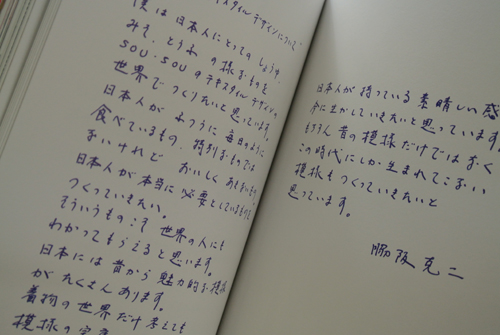 テキスタイルデザインについて
僕は日本人にとってのしょうゆ、
みそ、とうふの様なものを
SOU・SOUのテキスタイルデザインの
世界でつくりたいと思っています。
日本人がふつうに毎日のように
食べているもの、特別なものでは
ないけれどおいしくあきないもの
日本人が本当に必要としているものを
つくっていきたい。
そういうものこそ世界の人にも
わかってもらえると思います。
日本には昔から魅力的な模様
がたくさんあります。
着物の世界だけ考えても
模様の宝庫
日本人が持っている素晴しい感
令に生かしていきたいと思っています。
もちろん昔の模様だけではなく
この時代にしか生まれてこない
模様もつくっていきたいと
思っています。
脇阪克二